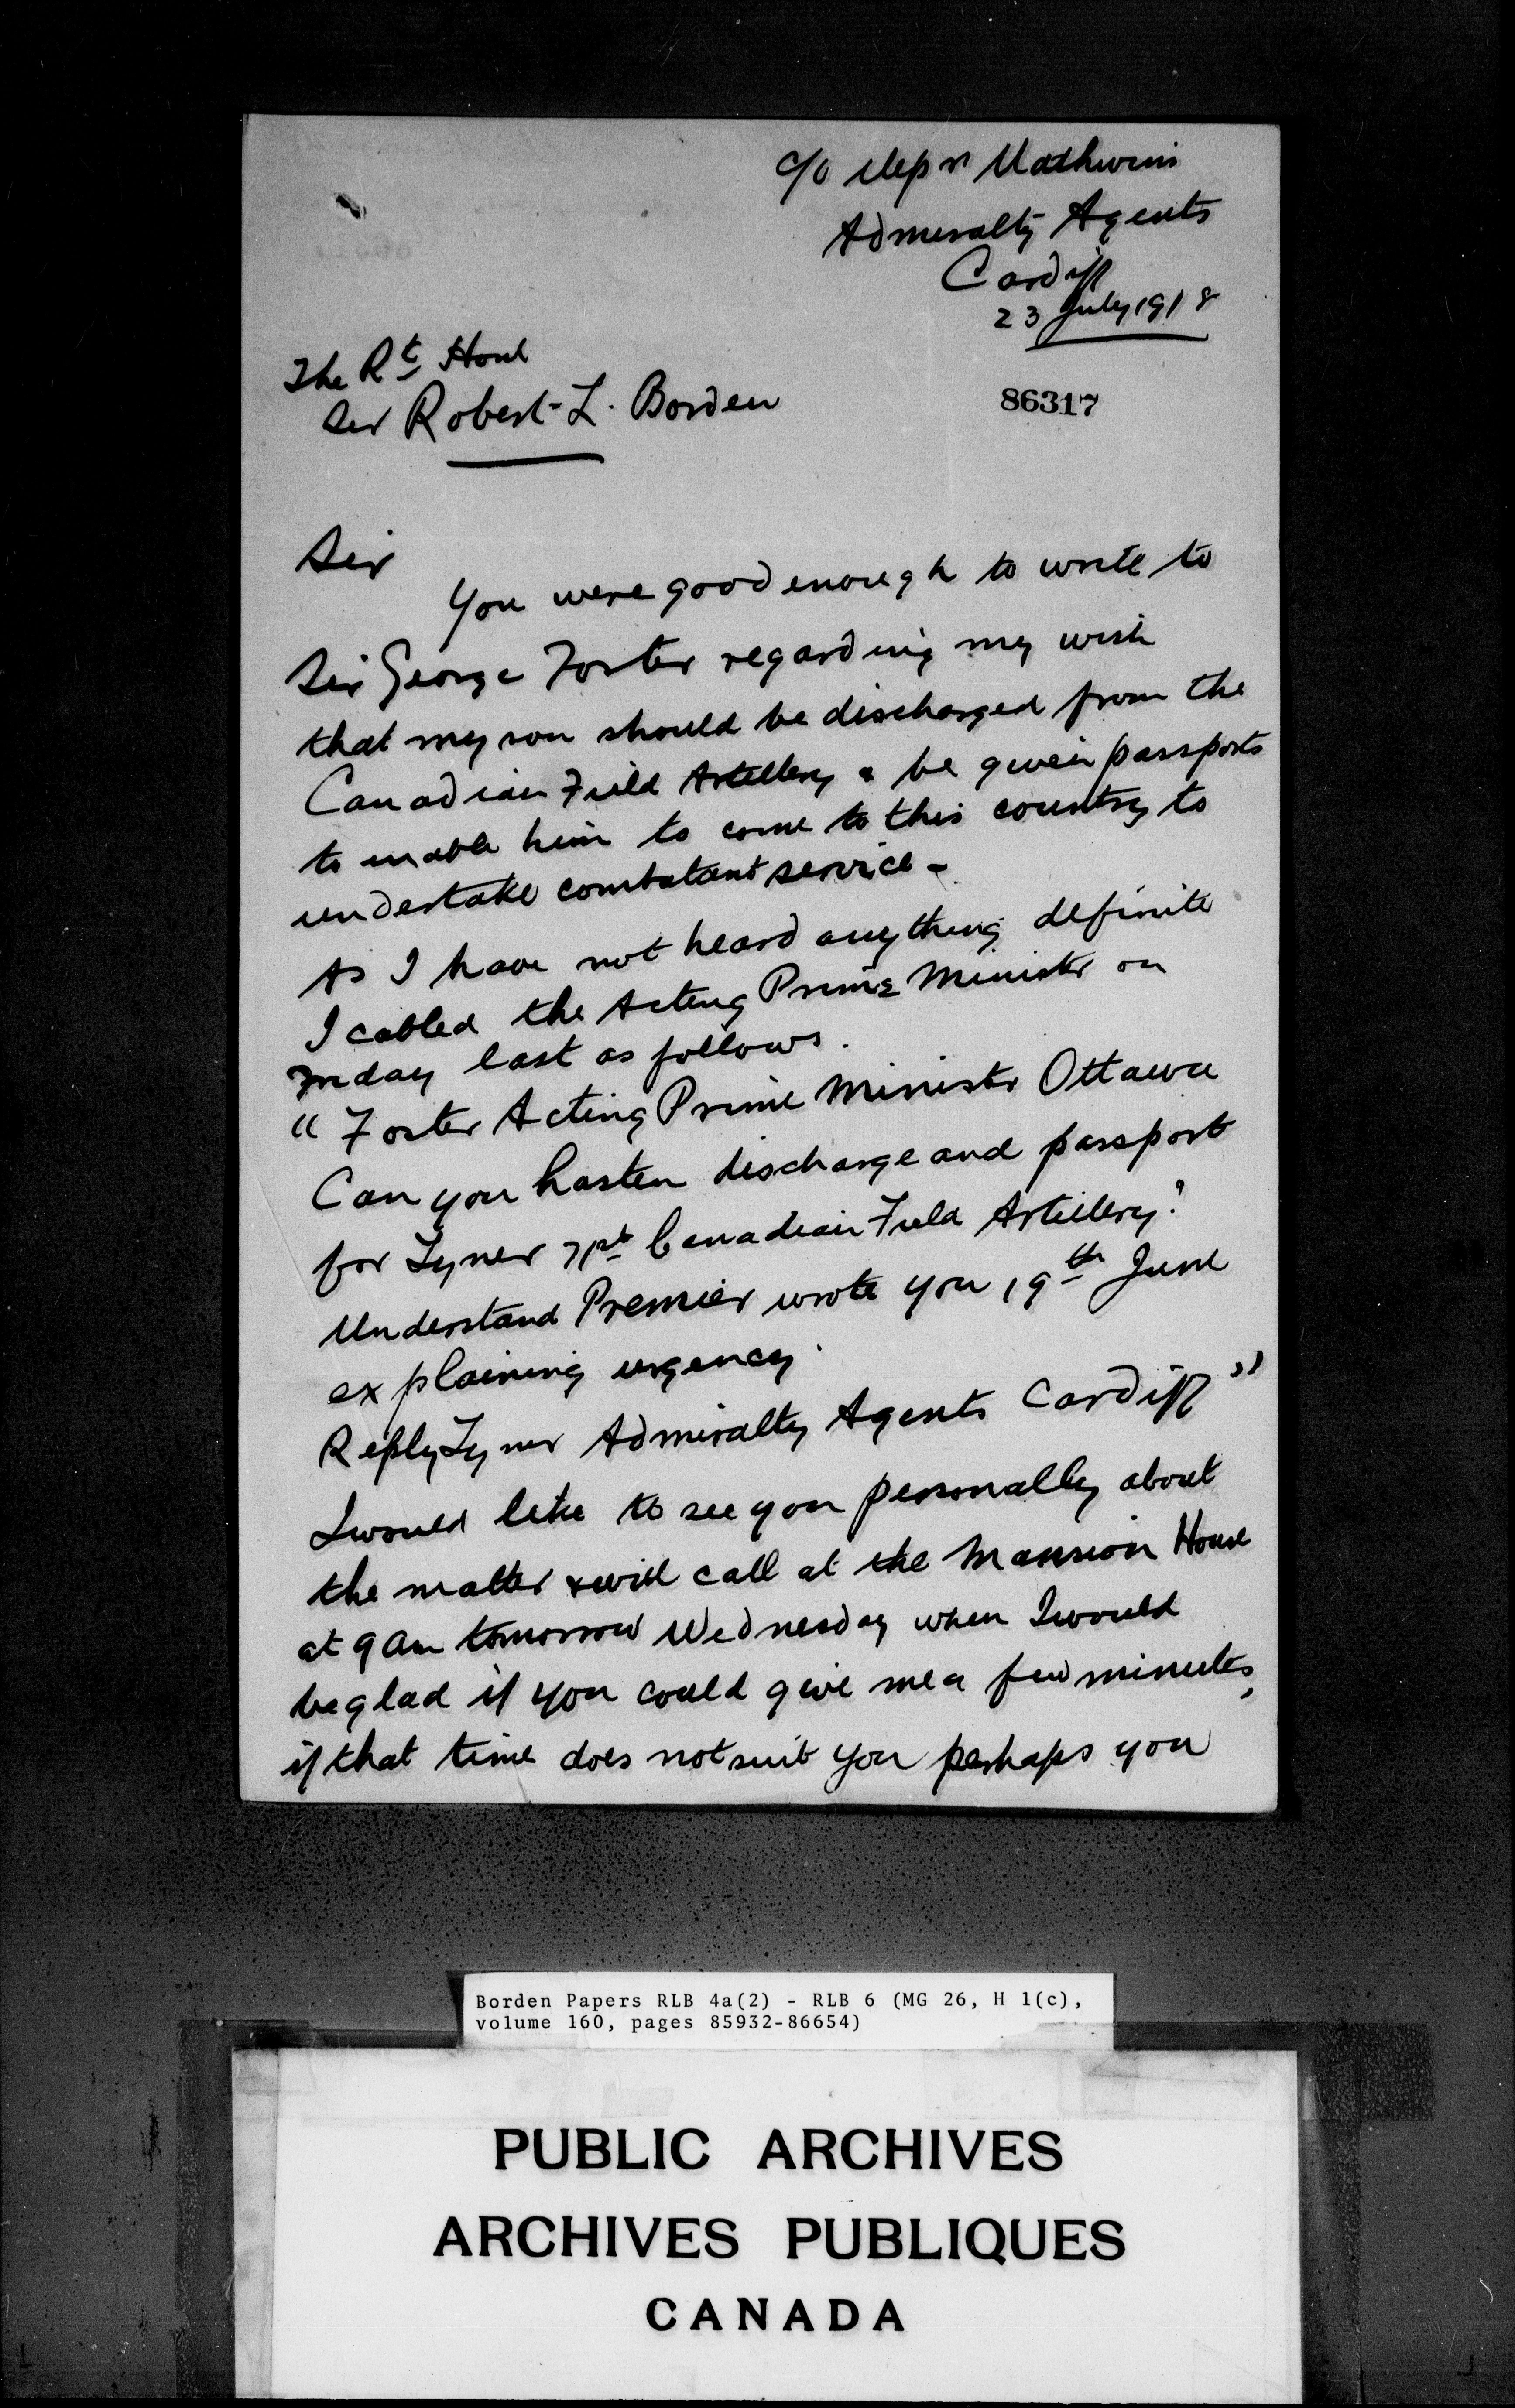 c/o Messrs Mathwin
Admiralty Agents
Cardiff
23 July 1918
The Rt Honl
Sir Robert L. Borden
86317
Sir
You were good enough to write to
Sir George Foster regarding my wish
that my son should be discharged from the
Canadian Field Artillery & be given passports
to enable him to come to this country to
undertake combatant service -
As I have not heard anything definite
I cabled the Acting Prime Minister on
Friday last as follows.
"Foster Acting Prime Minister Ottawa
Can you hasten discharge and passport
for Tyner 71st Canadian Field Artillery?
Understand Premier wrote you 19th June
explaining urgency.
Reply Tyner Admiralty Agents Cardiff"
I would like to see you personally about
the matter & will call at the Mansion House
at 9 am tomorrow Wednesday when I would
be glad if you could give me a few minutes,
if that time does not suit you perhaps you
Borden Papers RLB 4a(2) - RLB 6 (MG 26, H 1(c),
volume 160, pages 85932-86654)
PUBLIC ARCHIVES
ARCHIVES PUBLIQUES
CANADA